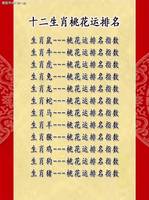 十二生肖桃花运排名
生肖鼠---桃花运排名指数
生肖牛---桃花运排名指数
生肖虎---桃花运排名指数
生肖兔---桃花运排名指数
生肖龙---桃花运排名指数
生肖蛇---桃花运排名指数
生肖马---桃花运排名指数
生肖羊---桃花运排名指数
生肖猴---桃花运排名指数
生肖鸡---桃花运排名指数
生肖狗---桃花运排名指数
生肖猪---桃花运排名指数